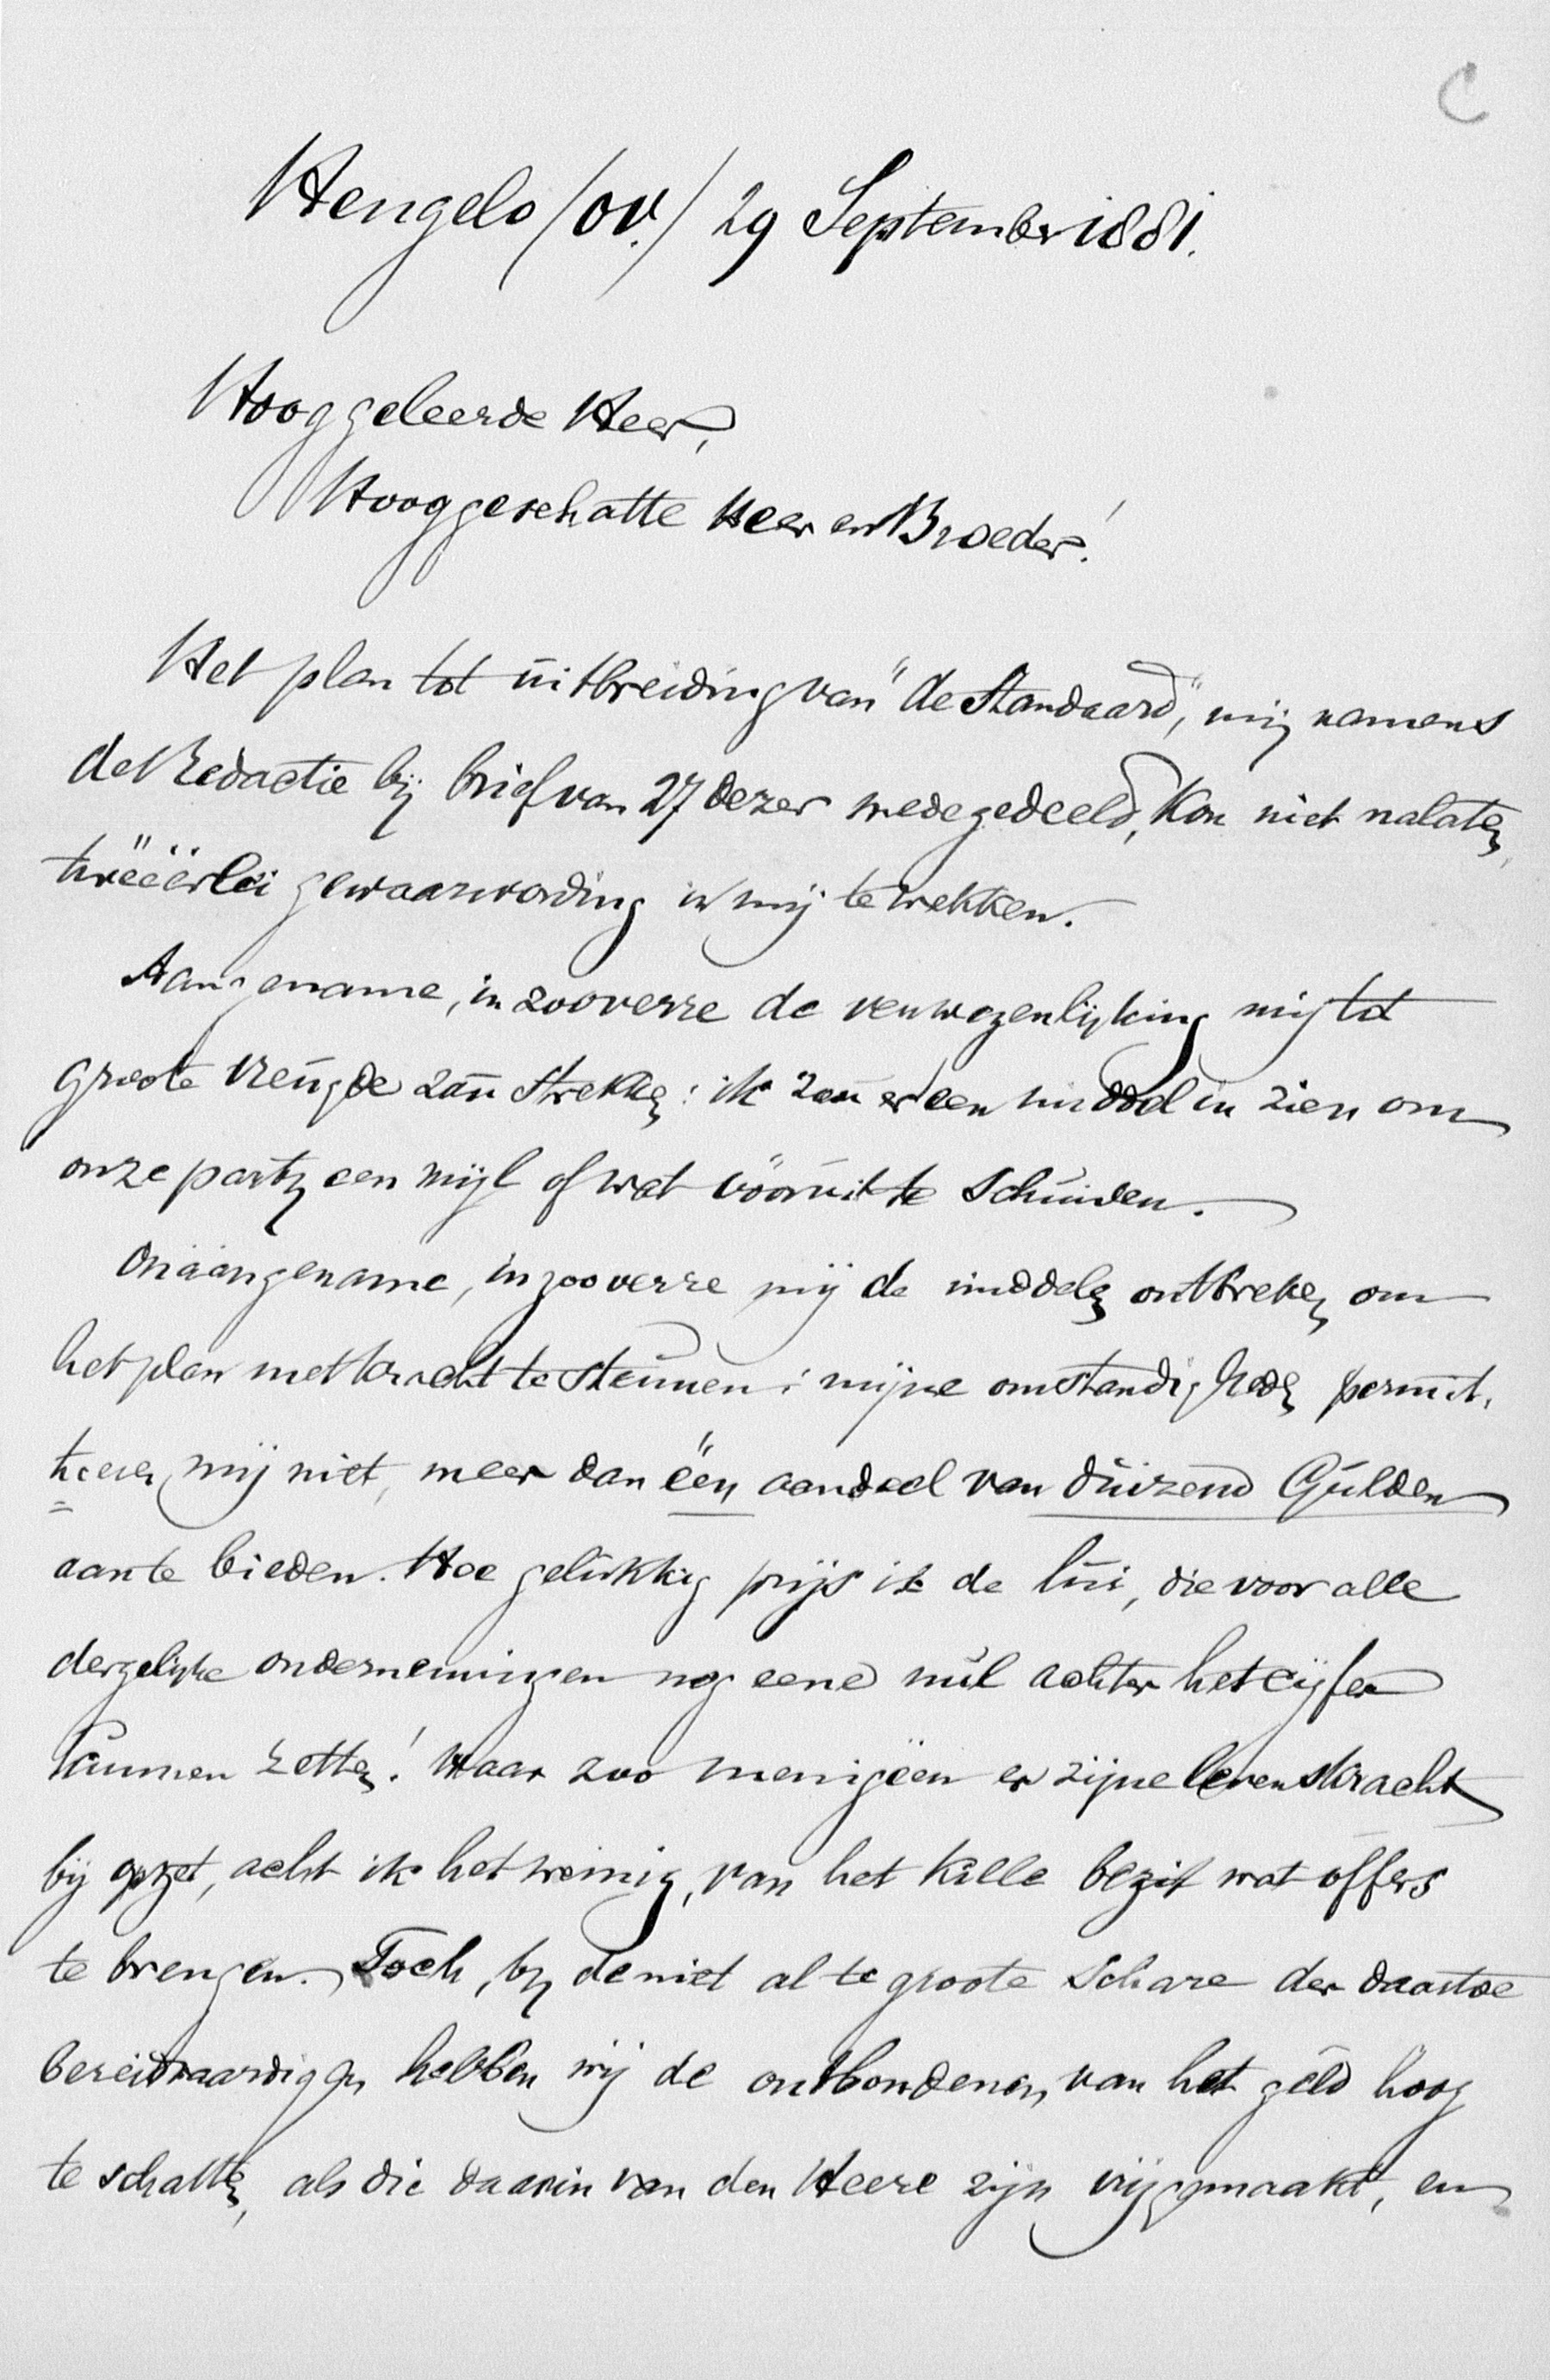 C
Hengelo (OV.) 29 September 1881.
Hooggeleerde Heer,
Hooggeschatte Heer en Broeder!
Het plan tot uitbreiding van "de Standaard," mij namens
de Redactie bij brief van 27 dezer medegedeeld, kon niet nalaten,
tweeërlei gewaarwording in mij te wekken.
Aangename, in zooverre de verwezenlijking mij tot
groote vreugde zou strekken: ik zou er een middel in zien om
onze partij een mijl of wat vooruit te schuiven.
Onaangename, in zooverre mij de middelen ontbreken om
het plan met kracht te steunen: mijne omstandigheden permit-
teeren mij niet, meer dan één aandeel van duizend Gulden
aan te bieden. Hoe gelukkig prijs ik de lui, die voor alle
dergelijke ondernemingen nog eene nul achter het cijfer
kunnen zetten! Waar zoo menigeen er zijne levenskracht
bij opzet, acht ik het weinig, van het kille bezit wat offers
te brengen. Toch, bij de niet al te groote schare der daartoe
bereidvaardigen hebben wij de ontbondenen van het geld hoog
te schatten, als die daarin van den Heere zijn vrijgemaakt, en